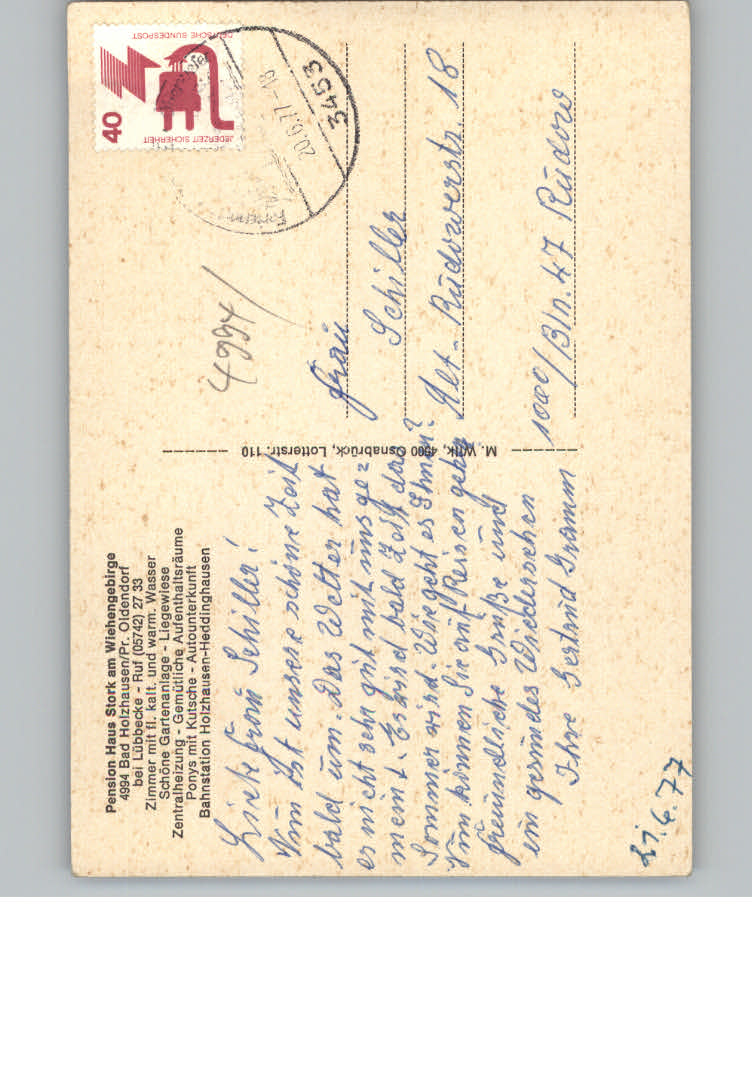 Pension Haus Stork am Wiehengebirge
4994 Bad Holzhausen/Pr. Oldendorf
bei Lübbecke - Ruf (05742) 27 33
Zimmer mit fl. kalt. und warm. Wasser
Schöne Gartenanlage - Liegewiese
Zentralheizung - Gemütliche Aufenthaltsräume
Ponys mit Kutsche - Autounterkunft
Bahnstation Holzhausen-Heddinghausen
Liebe Frau Schiller!
Nun ist unsere schöne Zeit
bald um. Das Wetter hat
es nicht sehr gut mit uns ge=
meint. Es wird bald Zeit das
Sommer wird. Wie geht es Ihnen?
Nun können Sie auf Reisen gehen
freundliche Grüße und
ein gesundes Wiedersehen
Ihre Gertrud Gramm
21.6.77
M. Wilk, 4500 Osnabrück, Lotterstr. 110
40
JEDERZEIT SICHERHEIT
DEUTSCHE BUNDESPOST
3453
20.6.77-18
4994
Frau
Schiller
Alt-Rudowerstr. 18
1000/Bln. 47 Rudow